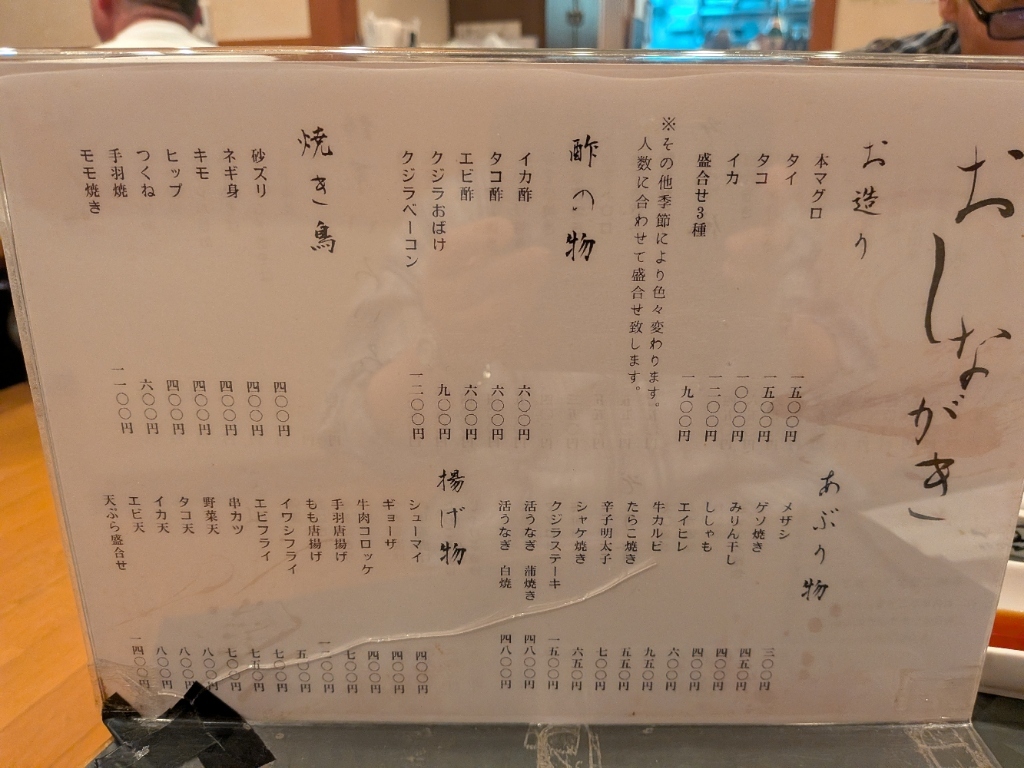 おしながき
お造り
本マグロ 一五〇〇円
タイ 一五〇〇円
タコ 一〇〇〇円
イカ 一二〇〇円
盛合せ3種 一九〇〇円
※その他季節により色々変わります。
人数に合わせて盛合せ致します。
酢の物
イカ酢 六〇〇円
タコ酢 六〇〇円
エビ酢 六〇〇円
クジラおばけ 九〇〇円
クジラベーコン 一二〇〇円
焼き鳥
砂ズリ 四〇〇円
ネギ身 四〇〇円
キモ 四〇〇円
ヒップ 四〇〇円
つくね 四〇〇円
手羽焼 六〇〇円
モモ焼き 一一〇〇円
あぶり物
メザシ 三〇〇円
ゲソ焼き 四五〇円
みりん干し 四〇〇円
ししゃも 四〇〇円
エイヒレ 六〇〇円
牛カルビ 九五〇円
たらこ焼き 五五〇円
辛子明太子 七〇〇円
シャケ焼き 六五〇円
クジラステーキ 一五〇〇円
活うなぎ 蒲焼き 四八〇〇円
活うなぎ 白焼 四八〇〇円
揚げ物
シューマイ 四〇〇円
ギョーザ 四〇〇円
牛肉コロッケ 四〇〇円
手羽唐揚げ 七〇〇円
もも唐揚げ
イワシフライ 五〇〇円
エビフライ 七〇〇円
串カツ 七五〇円
野菜天 七〇〇円
タコ天 八〇〇円
イカ天 八〇〇円
エビ天 八〇〇円
天ぷら盛合せ 一四〇〇円